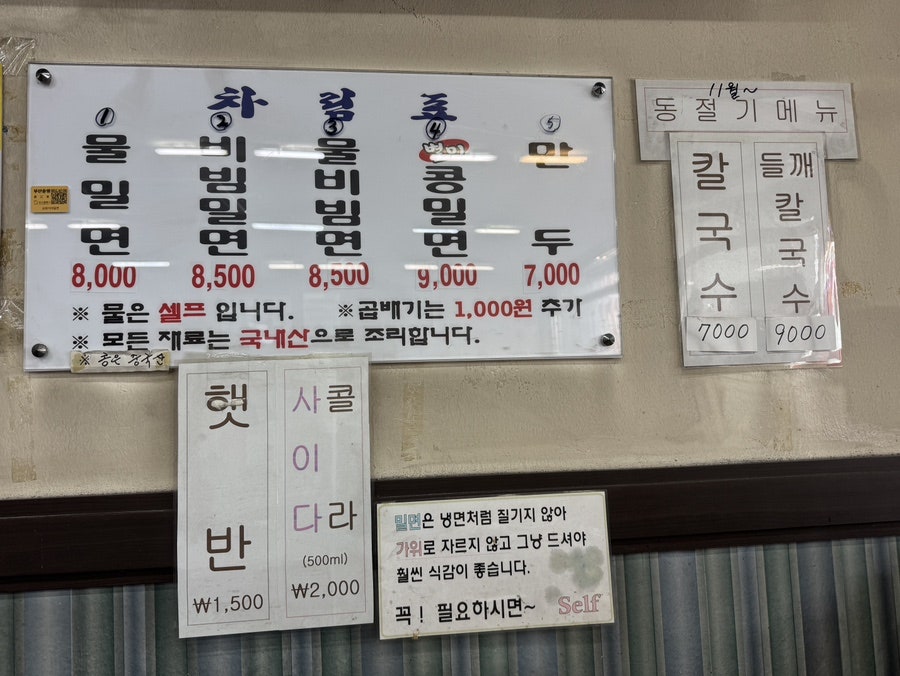 차림표
① ② ③ ④ ⑤
물밀면 비빔밀면 물비빔면 별미 콩밀면 만두
8,000 8,500 8,500 9,000 7,000
※ 물은 셀프 입니다. ※곱배기는 1,000원 추가
※ 모든 재료는 국내산으로 조리합니다.
※ 콩은 중국산
11월~
동절기메뉴
칼국수 들깨칼국수
7000 9000
햇반 사이다 콜라
(500ml)
₩1,500 ₩2,000
밀면은 냉면처럼 질기지 않아
가위로 자르지 않고 그냥 드셔야
훨씬 식감이 좋습니다.
꼭! 필요하시면~ Self